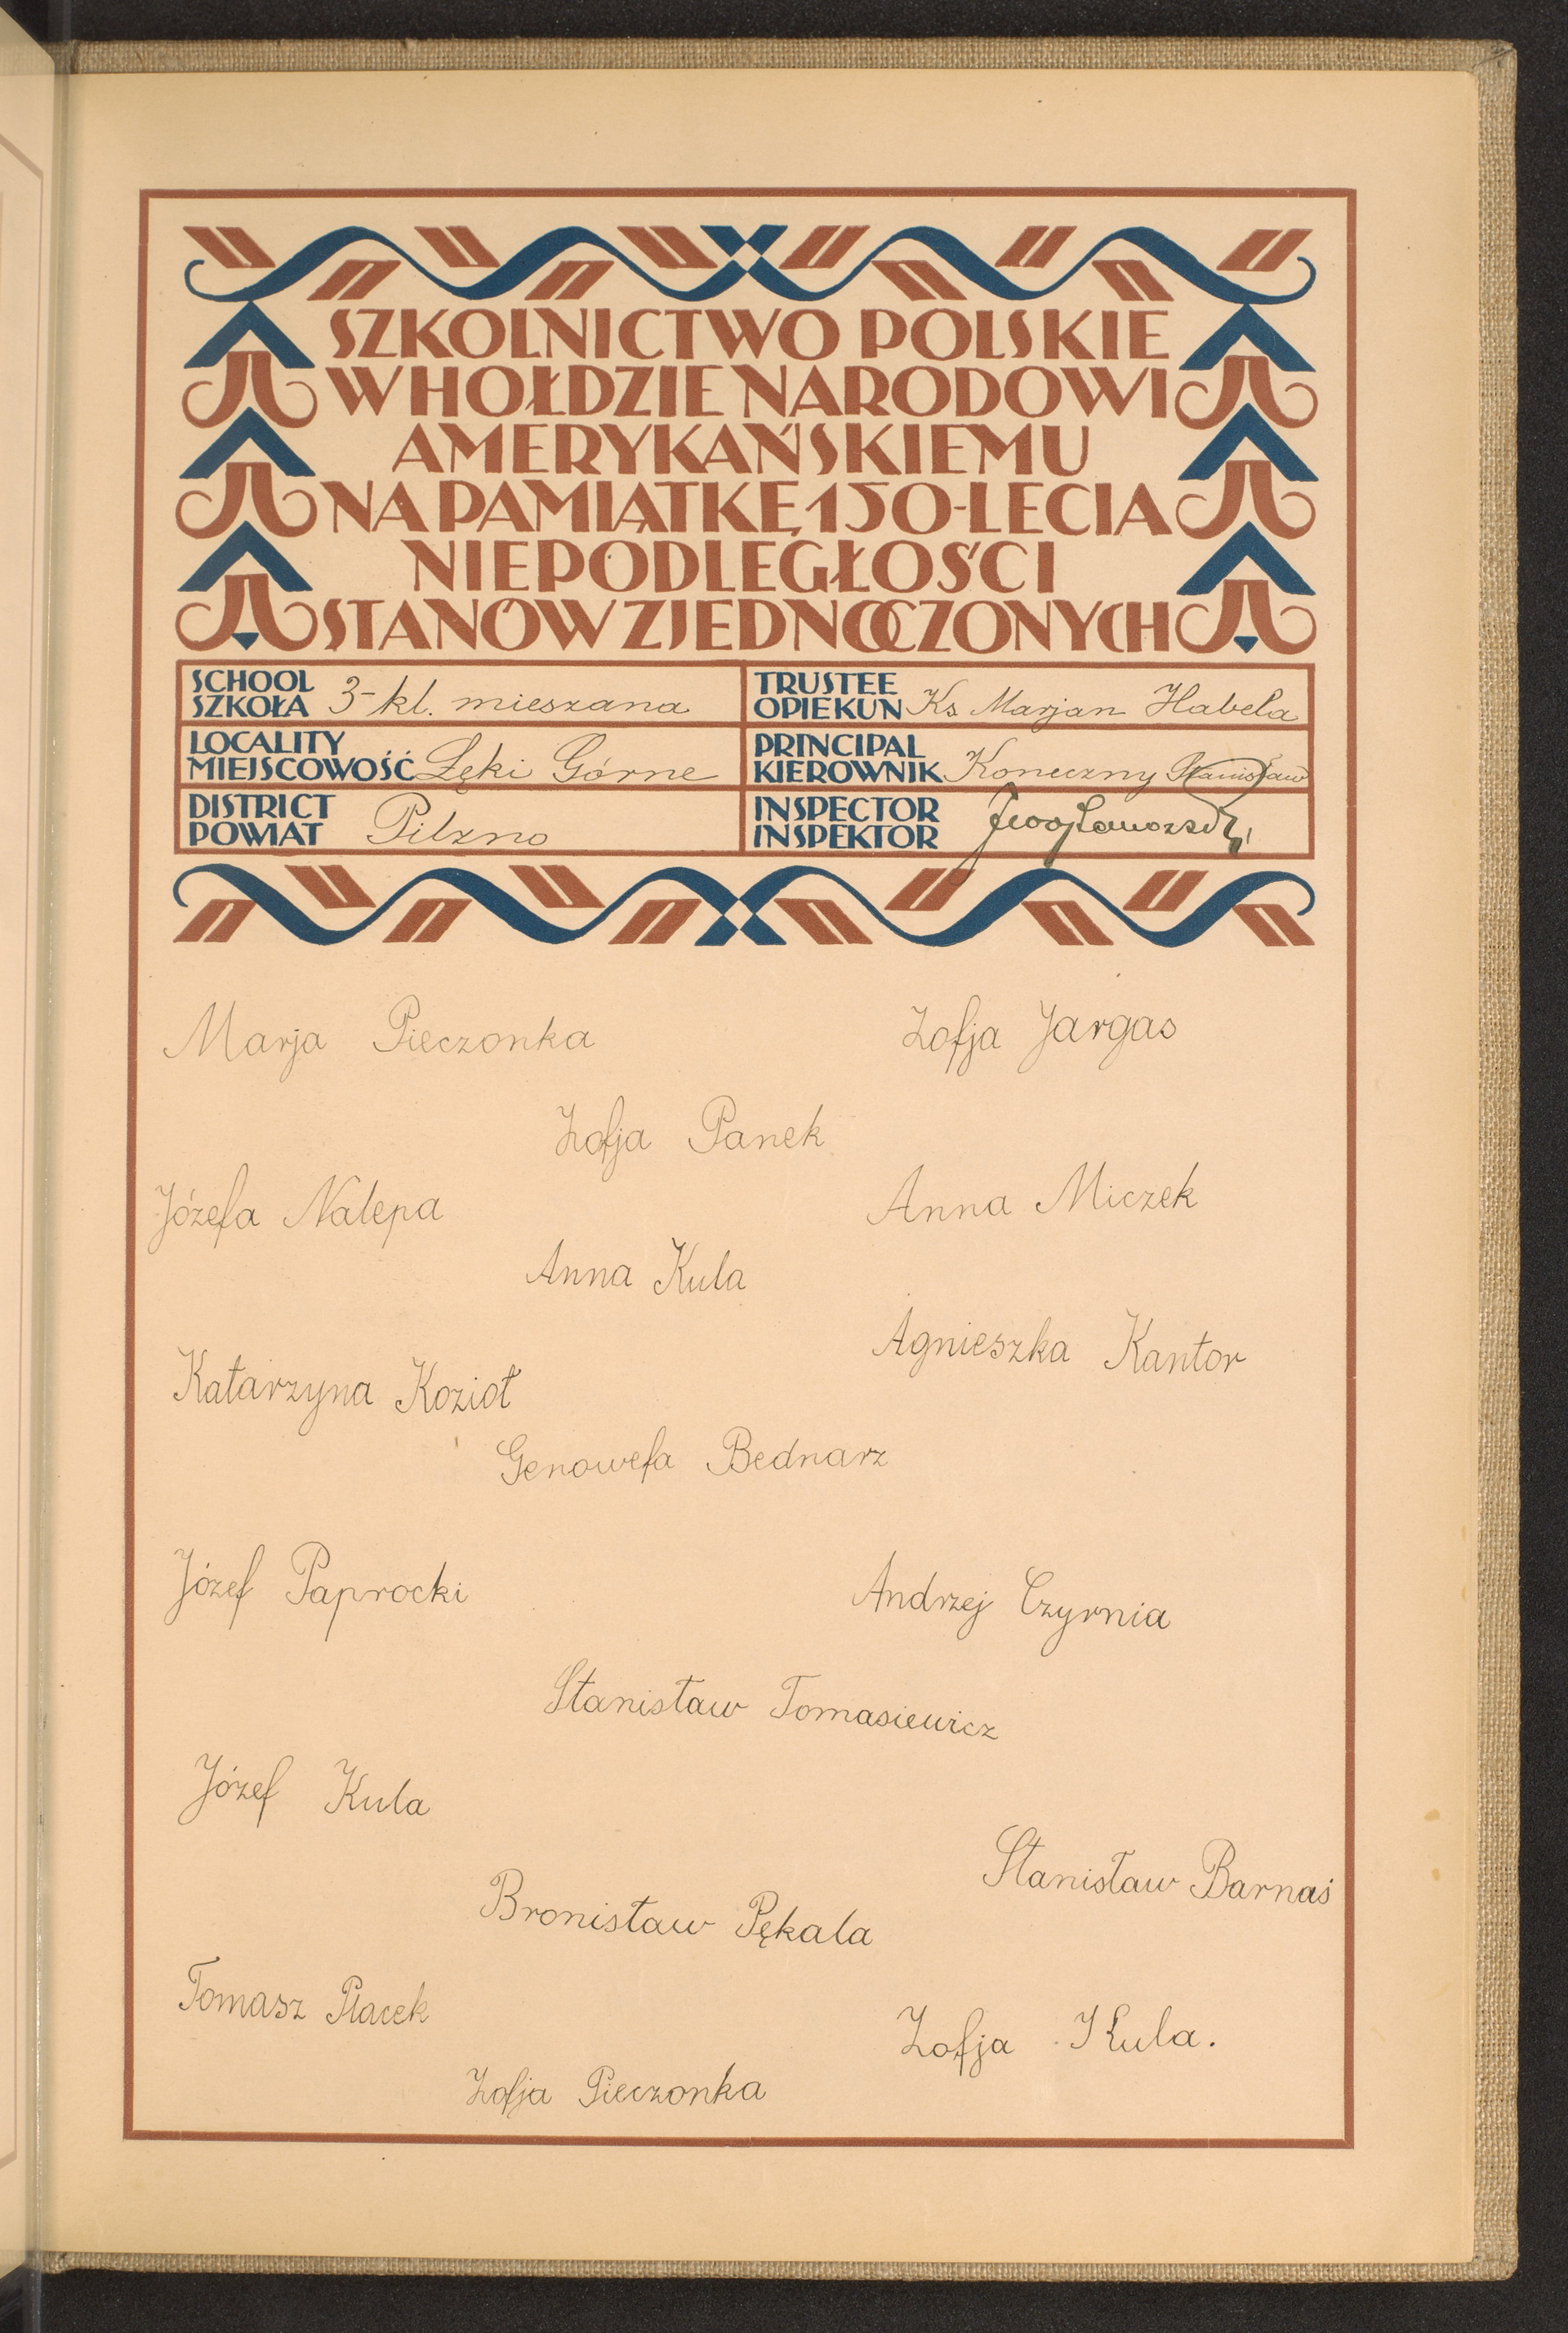 SZKOLNICTWO POLSKIE
W HOŁDZIE NARODOWI
AMERYKAŃSKIEMU
NA PAMIĄTKĘ 150-LECIA
NIEPODLEGŁOŚCI
STANÓW ZJEDNOCZONYCH
SCHOOL
SZKOŁA 3-kl. mieszana
TRUSTEE
OPIEKUN Ks Marjan Habela
LOCALITY
MIEJSCOWOŚĆ Łęki Górne
PRINCIPAL
KIEROWNIK Koneczny Stanisław
DISTRICT
POWIAT Pilzno
INSPECTOR
INSPEKTOR
Marja Pieczonka
Zofja Jargas
Zofja Panek
Józefa Nalepa
Anna Miczek
Anna Kula
Agnieszka Kantor
Katarzyna Kozioł
Genowefa Bednarz
Józef Paprocki
Andrzej Czyrnia
Stanisław Tomasiewicz
Józef Kula
Stanisław Barnaś
Bronisław Pękala
Tomasz Placek
Zofja Kula.
Zofja Pieczonka